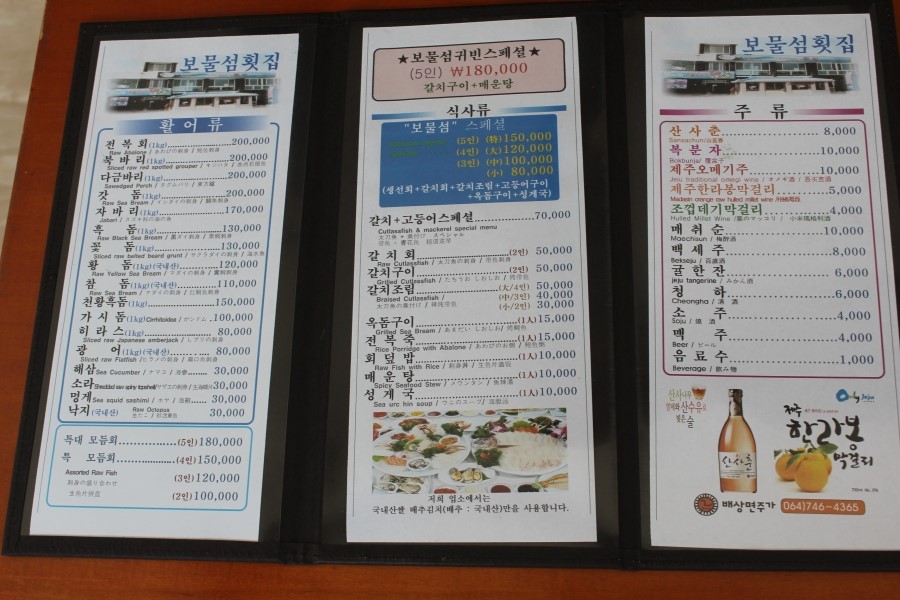 보물섬횟집
활 어 류
전 복 회(1kg) 200,000
Raw Abalone / あわびの刺身
북 바 리(1kg) 200,000
Sliced raw red spotted grouper
다금바리(1kg) 200,000
Sawedged Perch
갓 돔(1kg) 200,000
Raw Sea Bream
자 바 리(1kg) 170,000
Jabari
흑 돔(1kg) 130,000
Raw Black Sea Bream
꽃 돔(1kg) 130,000
Sliced raw belted beard grunt
황 돔(1kg)(국내산) 120,000
Raw Yellow Sea Bream
참 돔(1kg)(국내산) 110,000
Raw Sea Bream
천황흑돔(1kg) 150,000
가 시 돔(1kg) Cirrhitoidea 100,000
히 라 스(1kg) 80,000
Sliced raw Japanese amberjack
광 어(1kg)(국내산) 80,000
Sliced raw Flatfish
해삼 Sea Cucumber / ナマコ 30,000
소라 30,000
멍게 Sea squid sashimi 30,000
낙지(국내산) Raw Octopus 30,000
특대 모듬회 (5인) 180,000
특 모듬회 (4인) 150,000
Assorted Raw Fish (3인) 120,000
刺身の盛り合わせ
生魚片拼盘 (2인) 100,000
★보물섬귀빈스페셜★
(5인) ₩180,000
갈치구이+매운탕
식사류
"보물섬" 스페셜
(5인) (特) 150,000
(4인) (大) 120,000
(3인) (中) 100,000
(小) 80,000
(생선회+갈치회+갈치조림+고등어구이
+옥돔구이+성게국)
갈치+고등어스페셜 70,000
Cutlassfish & mackerel special menu
갈 치 회 (2인) 50,000
Raw Cutlassfish / 太刀魚の刺身
갈치구이 (2인) 50,000
Grilled Cutlassfish
갈치조림 (大/4인) 50,000
Braised Cutlassfish (中/3인) 40,000
(小/2인) 30,000
옥돔구이 (1人) 15,000
Grilled Sea Bream
전 복 죽 (1人) 15,000
Rice Porridge with Abalone
회 덮 밥 (1人) 10,000
Raw Fish with Rice
매 운 탕 (1人) 10,000
Spicy Seafood Stew / メウンタン
성 게 국 (1人) 10,000
Sea urc hin soup
저희 업소에서는
국내산쌀 배추김치(배추 : 국내산)만을 사용합니다.
보물섬횟집
주 류
산 사 춘 8,000
복 분 자 10,000
Bokbunja/ 覆盆子
제주오메기주 10,000
Jeju traditional omegi wine
제주한라봉막걸리 5,000
조껍데기막걸리 4,000
Hulled Millet Wine
매 취 순 10,000
Maechisun / 梅酔酒
백 세 주 8,000
Bekseju / 百歳酒
귤 한 잔 6,000
jeju tangerine / みかん酒
청 하 6,000
Cheongha / 清 酒
소 주 4,000
Soju / 燒 酒
맥 주 4,000
Beer / ビール
음 료 수 1,000
Beverage / 飲み物
산사나무
열매와 산수유로
빚은 술
산사춘
Only Jeju
제주
한라봉
막걸리
배상면주가 064)746-4365